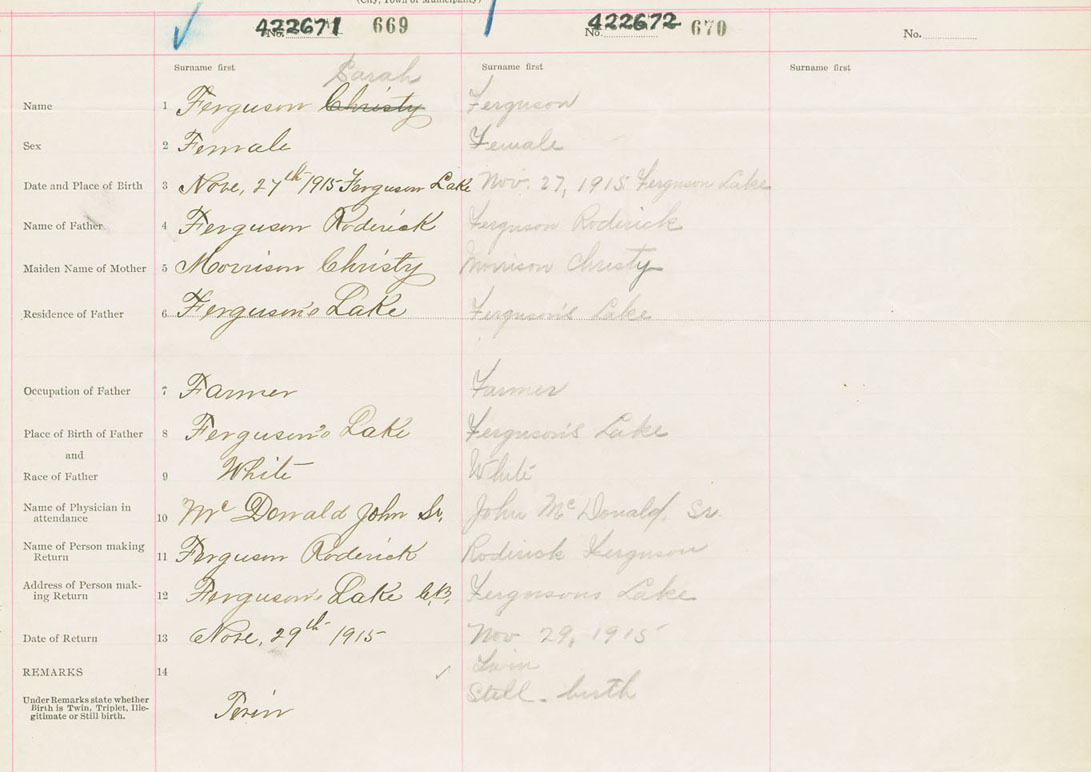 (City, Town or Municipality)
422671 669 422672 670
No. No. No.
Surname first Sarah Surname first Surname first
Name 1 Ferguson Christy Ferguson
Sex 2 Female Female
Date and Place of Birth 3 Nove, 27th 1915 Ferguson Lake Nov. 27, 1915 Ferguson Lake
Name of Father 4 Ferguson Roderick Ferguson Roderick
Maiden Name of Mother 5 Morrison Christy Morrison Christy
Residence of Father 6 Ferguson's Lake Ferguson's Lake
Occupation of Father 7 Farmer Farmer
Place of Birth of Father 8 Ferguson's Lake Ferguson's Lake
and
Race of Father 9 White White
Name of Physician in
attendance 10 Mc Donald John Sr. John Mc Donald, Sr.
Name of Person making
Return 11 Ferguson Roderick Roderick Ferguson
Address of Person mak-
ing Return 12 Ferguson's Lake C.B. Fergusons Lake
Date of Return 13 Nove, 29th 1915 Nov 29, 1915
REMARKS 14 Twin
Under Remarks state whether
Birth is Twin, Triplet, Ille-
gitimate or Still birth. Twin Still-birth